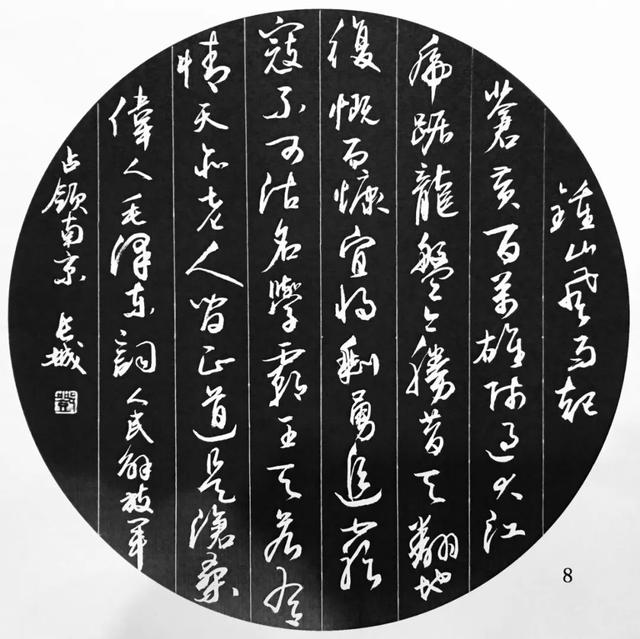 鍾山風雨起
蒼黃百萬雄師過大江
虎踞龍盤今勝昔天翻地
復慨而慷宜將剩勇追窮
寇不可沽名學霸王天若有
情天亦老人間正道是滄桑
偉人毛澤東詞人民解放軍
占領南京 長城
8